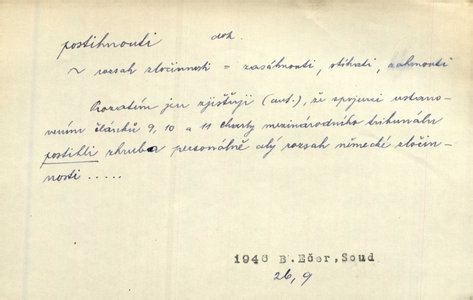 postihnouti dok.
~ rozsah zločinnosti = zasáhnouti, stíhati, zahrnouti
Prozatím jen zjišťuji (aut.), že spojenci ustano-
vením článků 9, 10 a 11 charty mezinárodního tribunálu
postihli zhruba personálně celý rozsah německé zločin-
nosti .....
1946 B. Ečer, Soud
26, 9